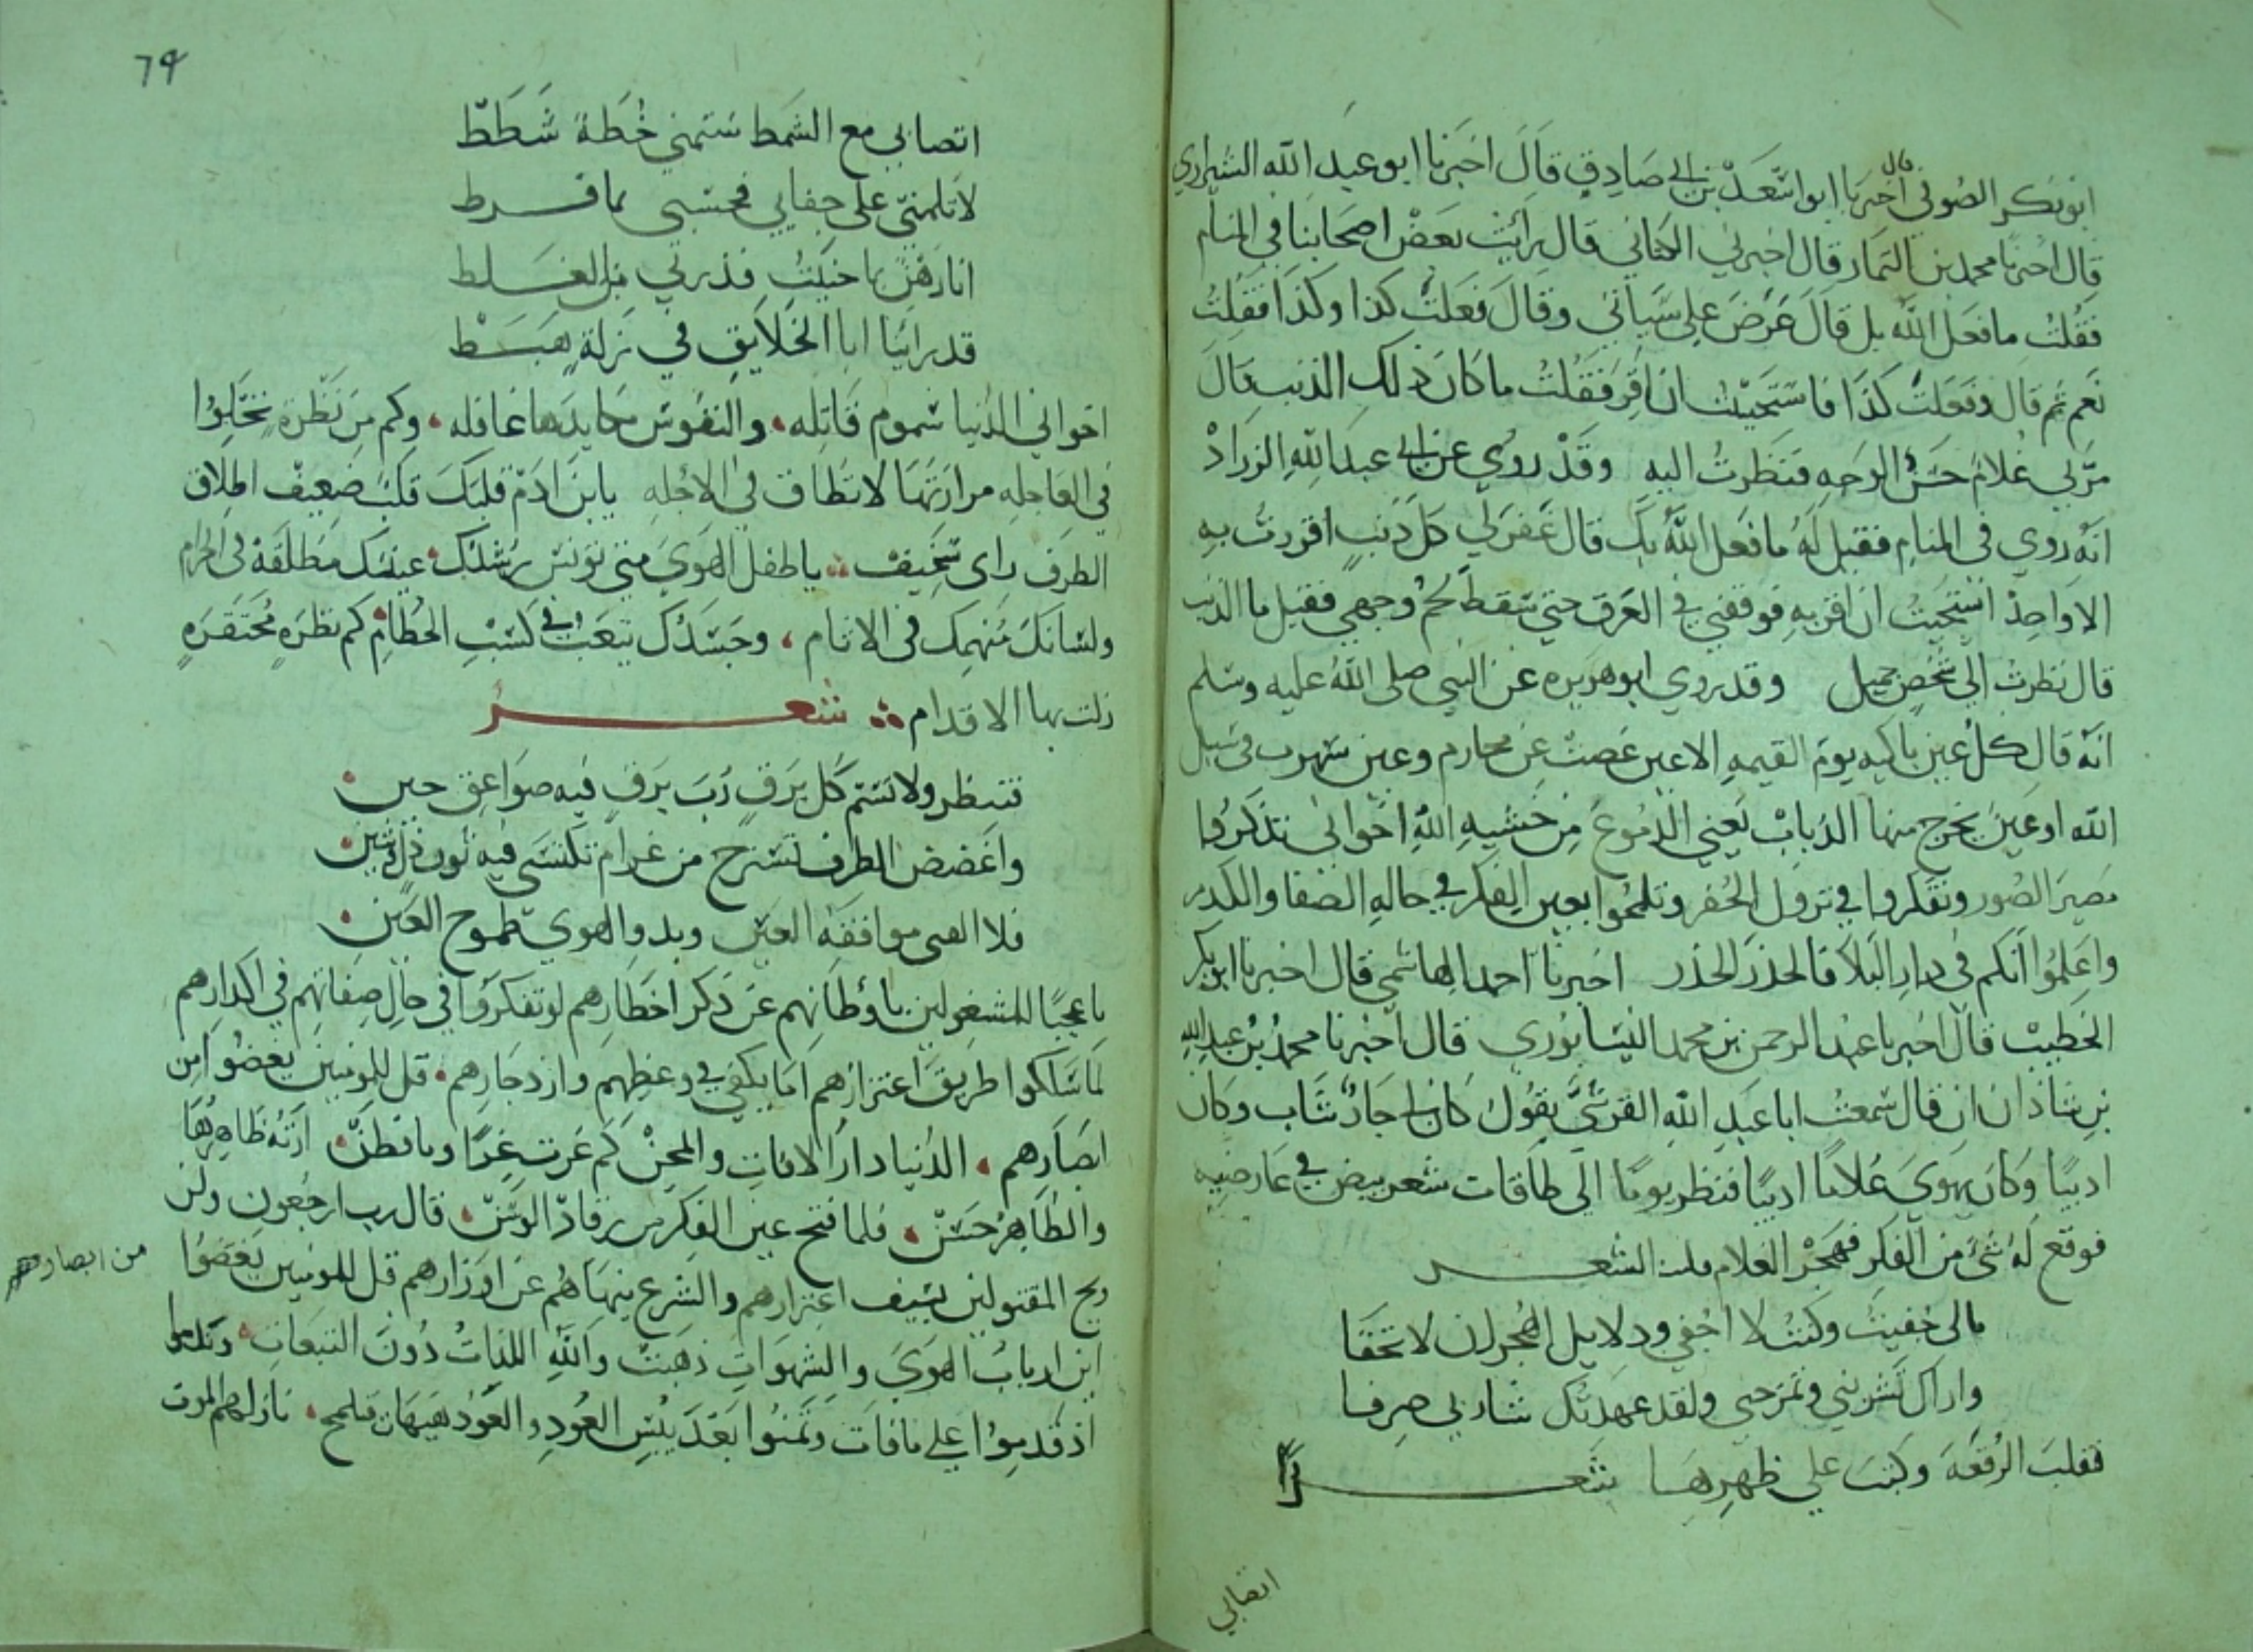 ابو بكر الصوفي قال اخبرنا ابو اسعد بن ابي صادق قَالَ اخبَرنا ابو عبَد الله الشيرازي
قال اخبرنا محمد بن التمار قال اخبرني الكتاني قال رَأيت بَعضْ اصحَابنَا في المنام
فقُلتُ ما فعَل الله بك قالَ عَرضَ علي سَيأتي وقَالَ فَعَلتَ كذا وكَذا فقَلتُ
نَعم ثم قال وفَعَلتَ كَذَا فاستَحَيْتُ ان اقِر فَقَلتُ ما كَانَ ذلك الذنب قال
مرّ بي غُلام حَسَنُ الوَجهِ فنَظرتُ اليه وقَدْ رُوِي عن ابي عبد اللهِ الزرادْ
انّهُ رُوي في المنام فقيل لَهُ ما فعَل اللهُ بكَ قال غفر لي كل ذنب اقررت بهِ
الا واحِدْ استَحَيَتُ ان اقر بهِ فوقفني في العَرق حتي سَقط لحمُ وجهي فقيل ما الذنب
قال نظرت الي شخصٍ جميل وقد روي ابو هريره عن النبي صلى اللهُ عليه وسلم
انّهُ قال كلُ عين باكيه يومَ القيمهِ الا عين غضت عن محارم وعين سَهرت في سَبيل
الله او عينَ يخرج منها الذباب يَعني الدُموعَ مِن خشيهِ اللهِ اخوَاني تذكروا
مَصيرَ الصُور وتفكروا في نزول الحُفر وتلمحُوا بعين الِفكر في حالهِ الصَفا والكدر
واعَلمُوا انكم في دارِ البَلاَ فالحذرَ الحذر اخبرنا احمد الهاشمي قال اخبرنا ابو بكر
الخطيبْ قالَ اخبرنا عبْد الرحمن بن محمد النيسَابوُري قال اخبرنا محمدُ بنُ عبد الله
بنِ شاذان ان قال سَمعتُ ابا عَبدِ اللهِ القرشيَّ يقوُل كان لي جارٌ شَاب وكان
اديبًا وكانَ يهَوي غلامًا اديبًا فنظر يومًا الي طاقات شعر بيض في عارضيه
فوقع لهُ شيُ من الفكر فهَجَر الغلام الشعـر
مالي جُفيتُ وكنتُ لا اجُفي ودلايل الهُجران لا تَخفَا
واراكَ تَشربني وتمزجني ولقد عَهدتُك شاربي صِرفا
فقلبَ الرُقعَهَ وكتبَ علي ظهرِهَا شعـرًا
اتصابي
74
اتصابي مع الشمط سَتمني خُطَة شَطَطْ
لا تلمنيّ علي جفايي فحسبي بما فرط
انا رَهْنٌ بما جنَيَتُ فذرني من الغلط
قد رايَنا ابا الخَلايقِ في زلةٍ هَبَطْ
اخوَاني الدُنيا سَموم قَاتِله والنفُوسَ مكايدَها غافله وكم مِن نَظْرةٍ تحَلوُا
في العاجلهِ مرارَتُها لا تطاق في الاجلهِ يا بنَ ادَمْ قلبَكَ قلبْ ضعيفْ اطلاق
الطرف راي سَخيف يا طفلَ الهَوي متي تونسَ رشدُكَ عينَك مطلقَة في الحرام
ولسَانكَ مُنهمِك في الاثام وجَسَدُك يتعَب في كَسْبِ الحُطامْ كم نظرَهٍ محتَقرَهٍ
زلت بها الاقدام شعـر
فتبظر ولا تشم كل بَرقٍ رُبَ برَقٍ فيه صوَاعِق حين
واغَضض الطرف تسترح من غرام تكتسي فيه ثوب ذل وشين
فلا الفتى موافقَه العيَن وبدو الهوي طموح العَين
يا عجبًا للمشغولين بأوطانهم عَن ذكر اخطارهم لو تفكروا في حال صِفاتهم في اكدارهم
لمَا سَلكوا طريق اغترارهم اما يكفي في وعظِهم وازدجارهم قل للمومنين يغضُوا مِن
ابصَارهم الدُنيا دارُ الافاتِ والمحِنْ كم غرت غِرًا وما فطَنّ ارتهُ ظاهِرهَا
والظاهرُ حَسَنْ فلما فتح عين الفِكر من رقادْ الوسَنْ قال رب ارجعون ولن
ويح المقتولين بسَيف اغترارهم والشرع ينهَاهُم عن اوزارهم قل للمومنين يَغضُوا
من ابصارهم
اين اربابُ الهَوَي والشِهوَاتِ ذهَبتْ واللهِ اللذَاتُ دُونَ التبعاتِ وندموا
اذ قَدِموُا علي ما فاتَ وتمنوُا بَعدَ يبُسِ العُودِ والعَوُدْ هَيهَات نازلهم الموت